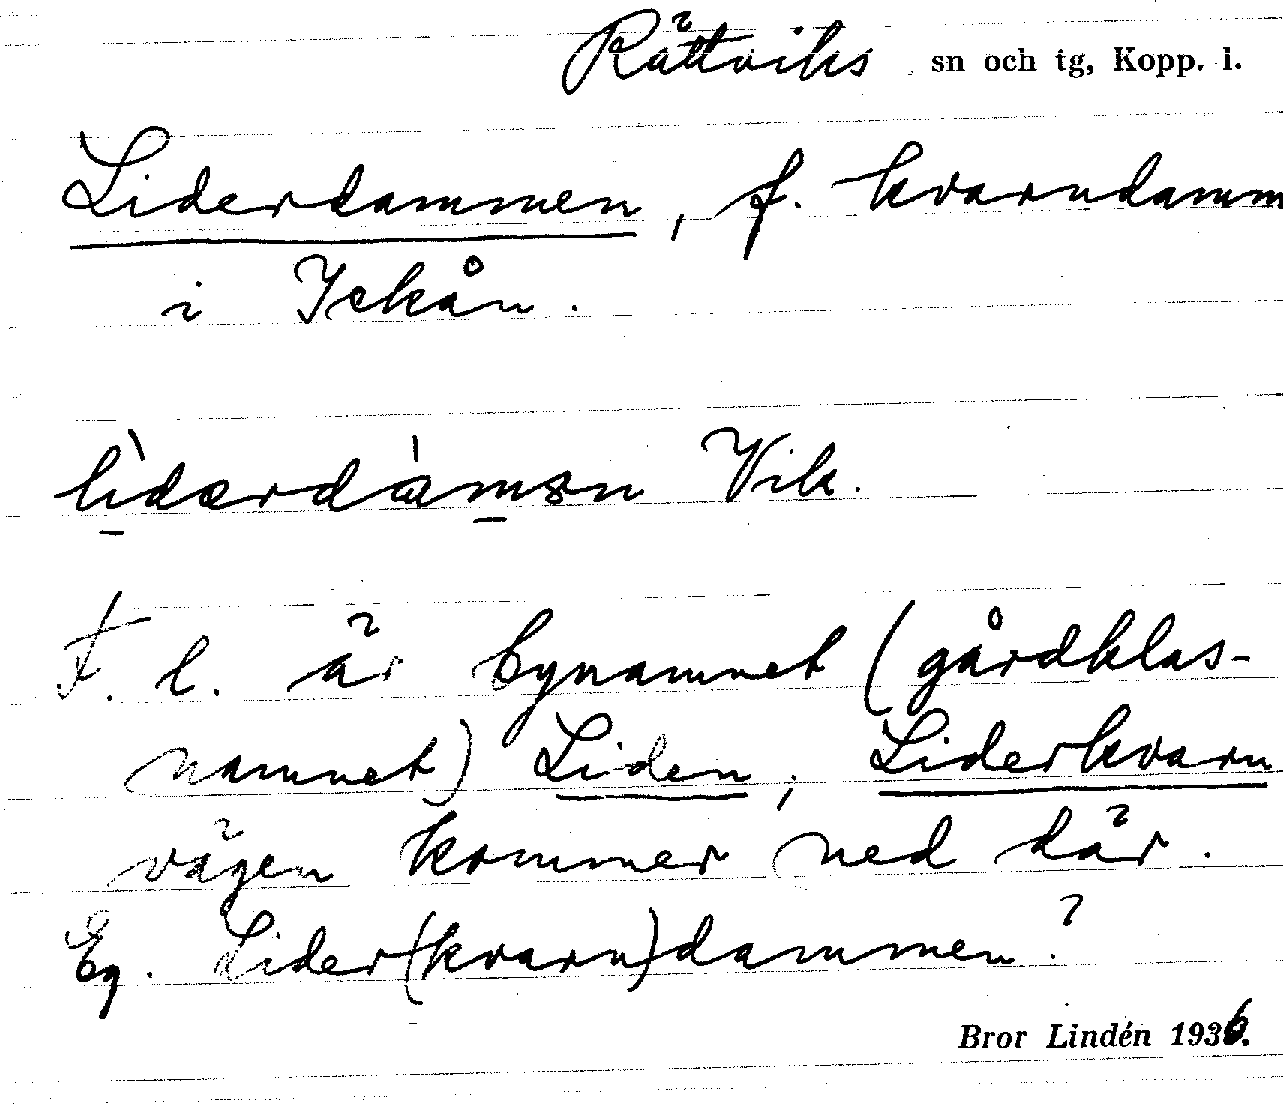 Rättviks sn och tg, Kopp. l.
Liderdammen, f. kvarndamm
i Ickån.
lìdərdámən Vik.
F. l. är bynamnet (gårdklas-
namnet) Liden; Liderkvarn
vägen kommer ned där.
Eg. Lider(kvarn)dammen?
Bror Lindén 1936.